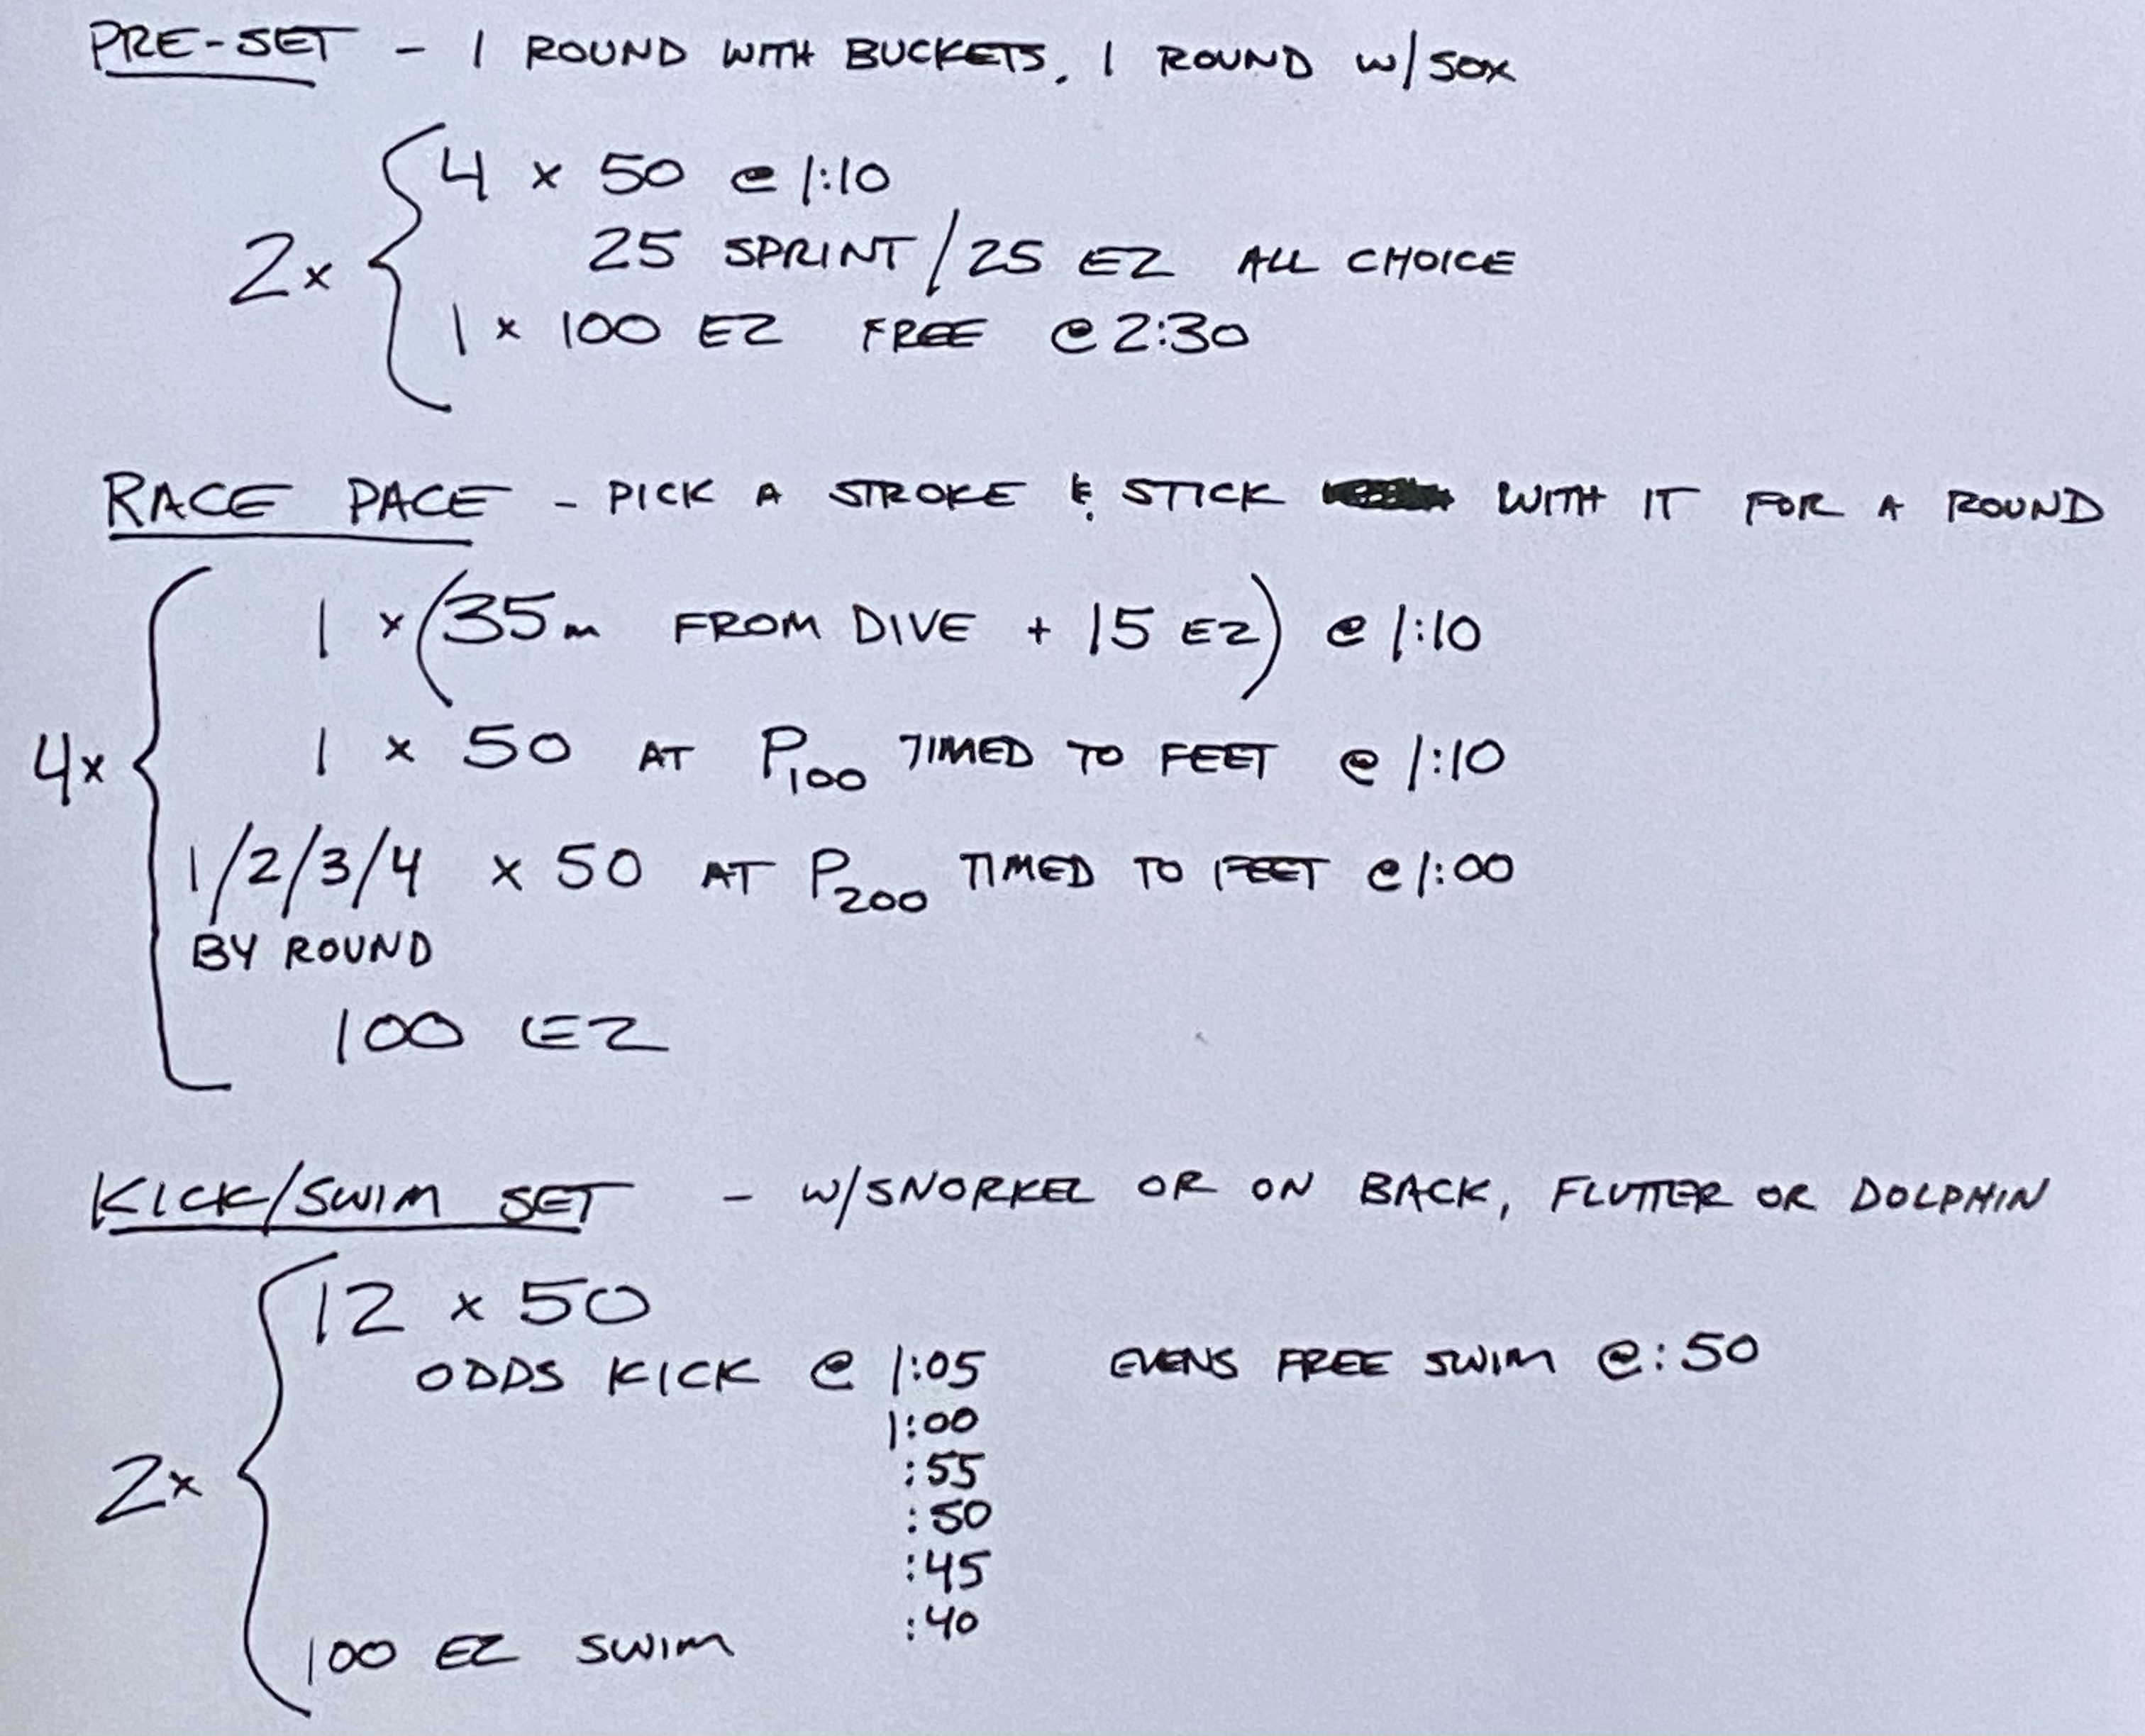 PRE-SET - 1 ROUND WITH BUCKETS. 1 ROUND W/SOX
4 x 50 @ 1:10
2x
25 SPRINT/25 EZ ALL CHOICE
1 x 100 EZ FREE @ 2:30
RACE PACE - PICK A STROKE & STICK WITH IT FOR A ROUND
1 x (35m FROM DIVE + 15 EZ) @ 1:10
4x
1 x 50 AT P100 TIMED TO FEET @ 1:10
1/2/3/4 x 50 AT P200 TIMED TO FEET @ 1:00
BY ROUND
100 EZ
KICK/SWIM SET - W/SNORKEL OR ON BACK, FLUTTER OR DOLPHIN
12 x 50
ODDS KICK @ 1:05 EVENS FREE SWIM @ :50
1:00
:55
2x
:50
:45
:40
100 EZ SWIM